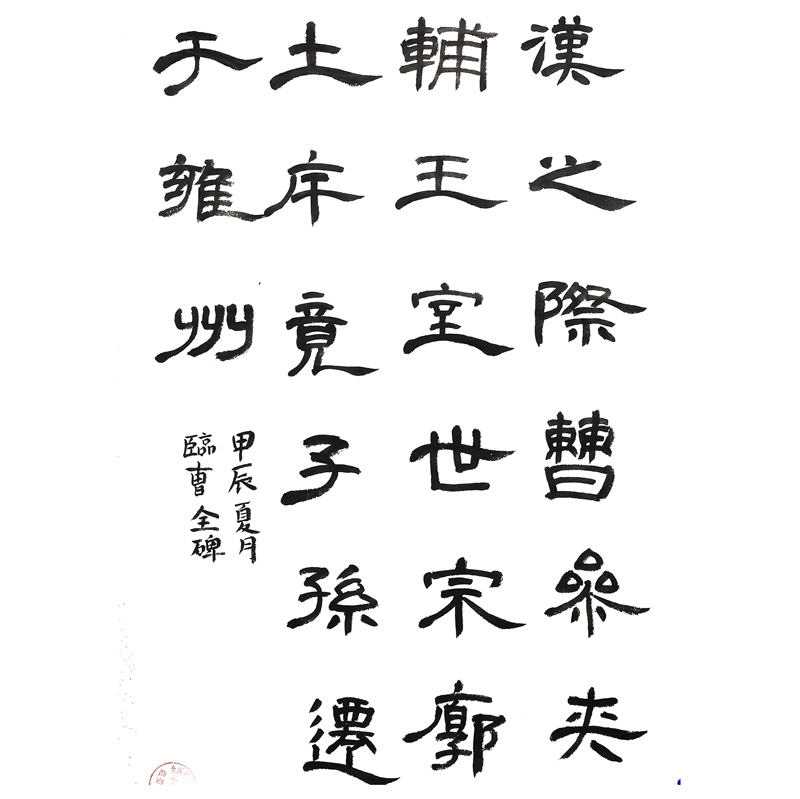 漢之際曹參夾
輔王室世宗廓
土斥竟子孫遷
于雍州
甲辰夏月
臨曹全碑